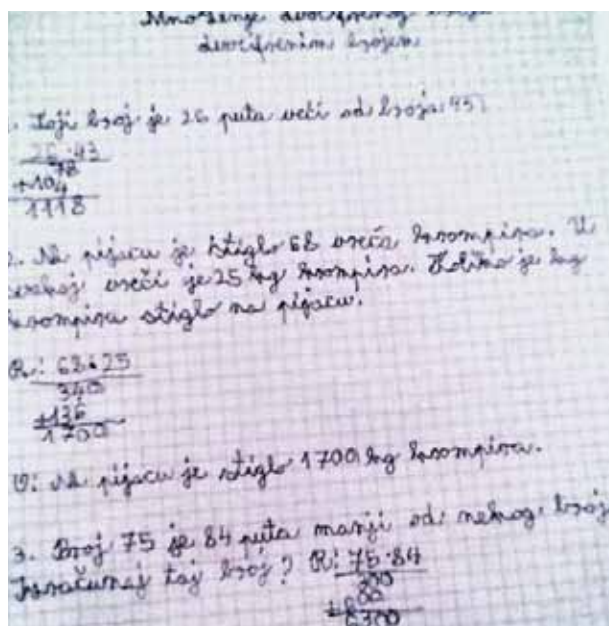 Množenje dvocifrenog broja
dvocifrenim brojem
Koji broj je 26 puta veći od broja 43?
26·43
78
+104
1118
2. Na pijacu je stiglo 68 vreća krompira. U
svakoj vreći je 25 kg krompira. Koliko je kg
krompira stiglo na pijacu.
R: 68·25
340
+136
1700
O: Na pijacu je stiglo 1700 kg krompira.
3. Broj 75 je 84 puta manji od nekog broja
Izračunaj taj broj? R: 75·84
300
6300